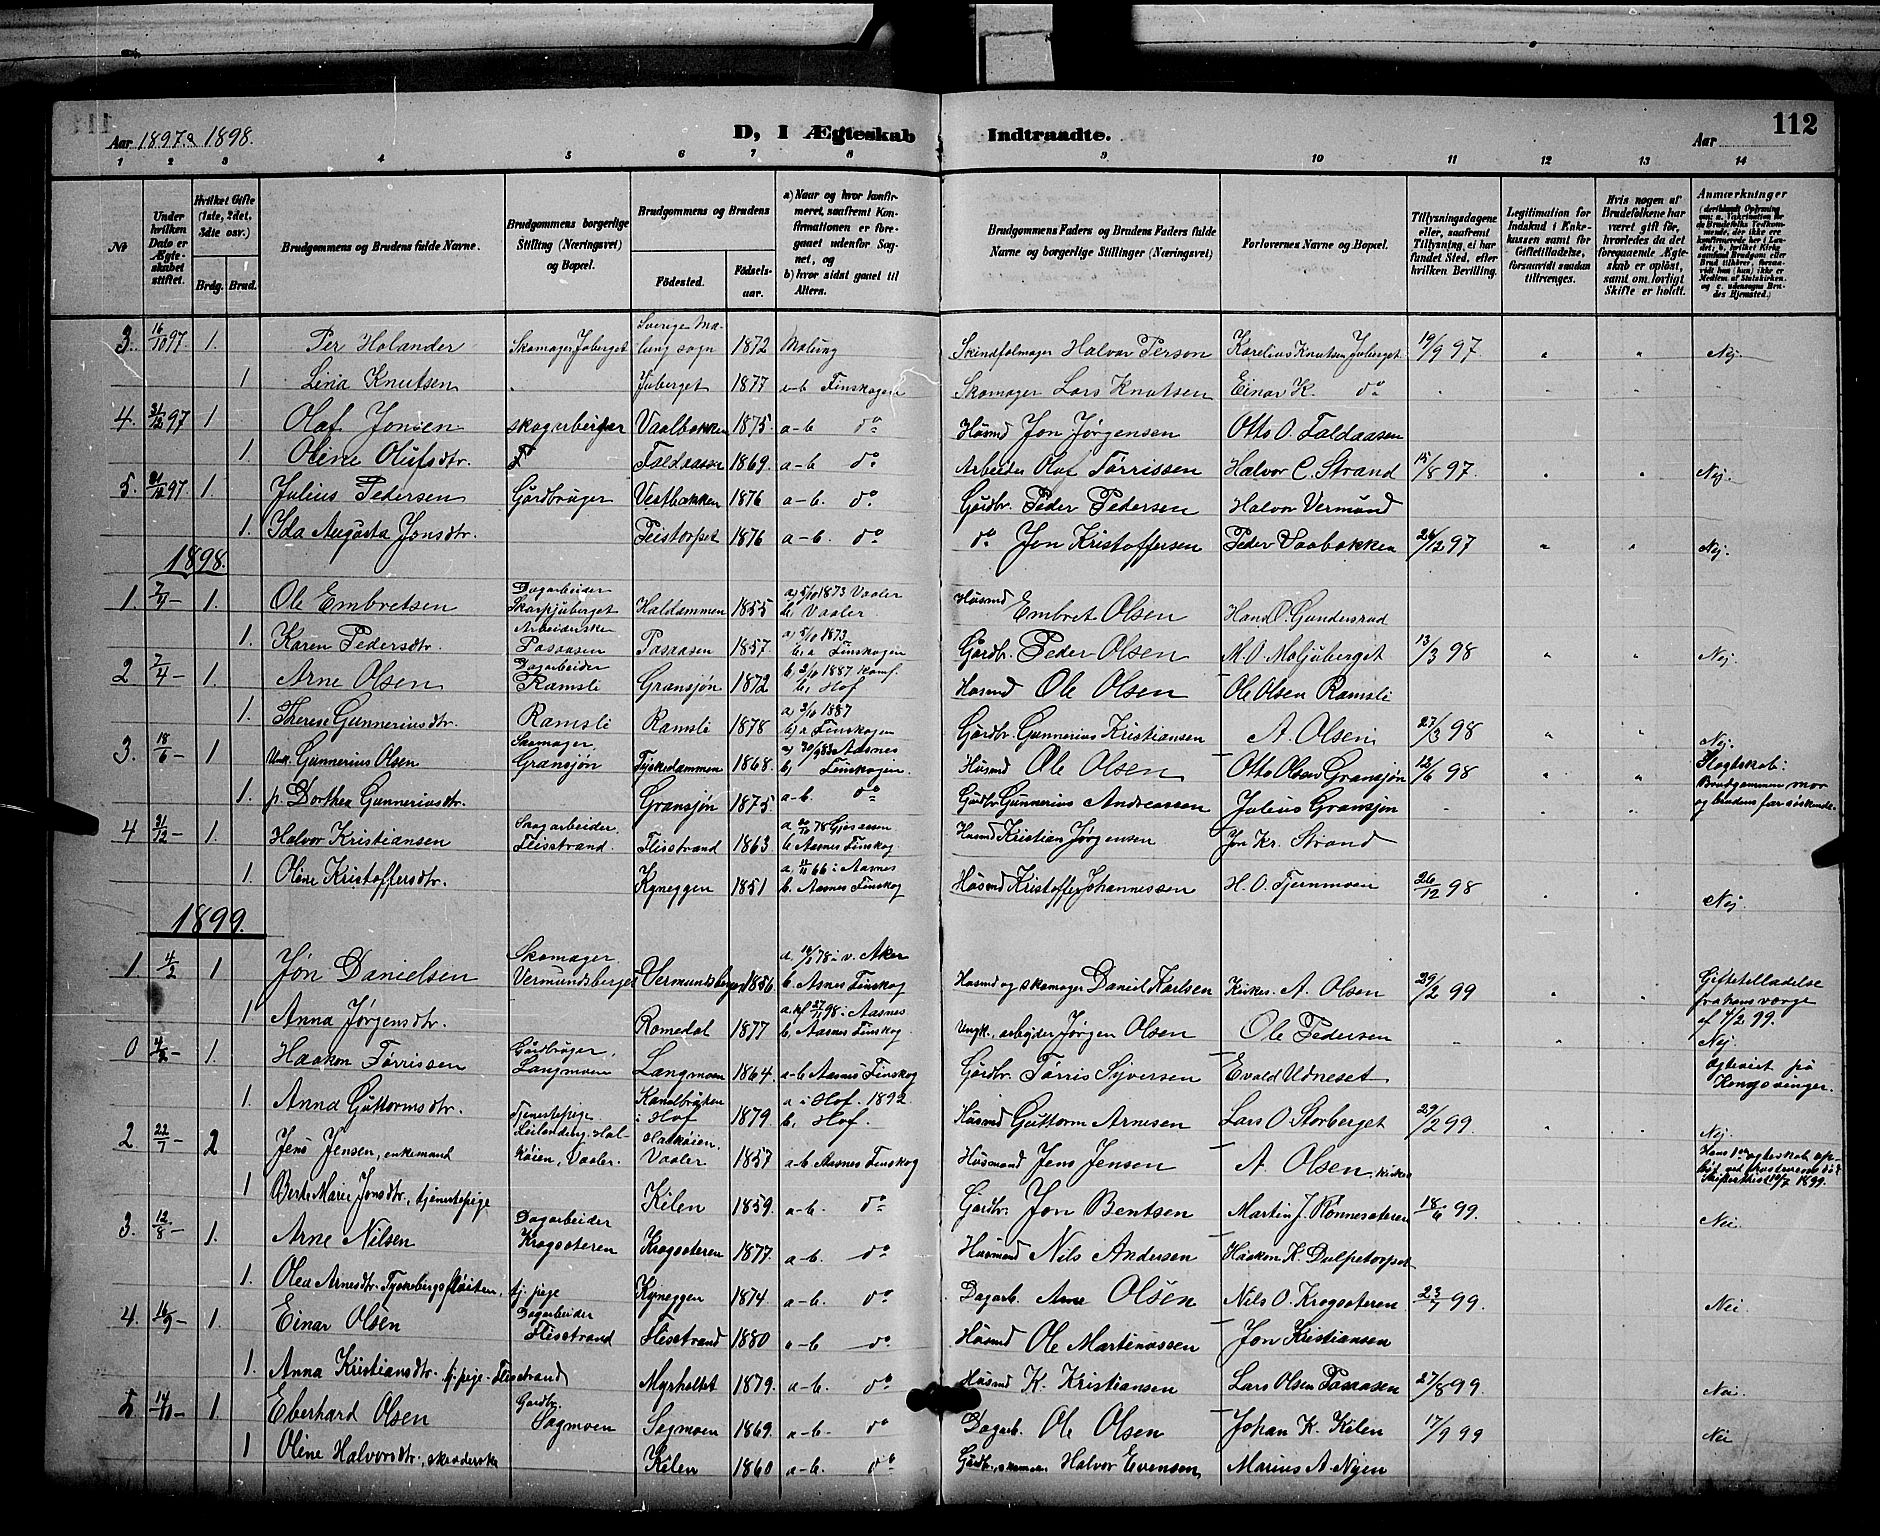 112
Aar 1897 & 1898.
D, I Ægteskab Indtraadte.
Aar
1 2 3 4 5 6 7 8 9 10 11 12 13 14
№
Under hvilken Dato er Ægteskabet stiftet.
Hvilket Gifte (1ste, 2det, 3die osv.)
Brdg. Brud.
Brudgommens og Brudens fulde Navne.
Brudgommens borgerlige Stilling (Næringsvei) og Bopæl.
Brudgommens og Brudens
Fødested.
Fødselsaar.
a) Naar og hvor konfirmeret, saafremt Konfirmationen er foregaaet udenfor Sognet, og
b) hvor sidst gaaet til Alters.
Brudgommens Faders og Brudens Faders fulde Navne og borgerlige Stillinger (Næringsvei)
Forlovernes Navne og Bopæl.
Tillysningsdagene eller, saafremt Tillysning ei har fundet Sted, efter hvilken Bevilling.
Legitimation for Indskud i Enkekassen samt for Giftetilladelse, forsaavidt saadan tiltrænges.
Hvis nogen af Brudefolkene har været gift før, hvorledes da det foregaaende Ægteskab er opløst, samt om lovligt Skifte er holdt.
Anmærkninger
3. 16/10 97 1. Per Holander Skomager Juberget Sverige Malung sogn 1872 Malung Skindfelmager Halvor Person Karelius Knutsen Juberget 19/9 97. " " Nej
1 Lina Knutsen Juberget 1877 a-b Finskogen Skomager Lars Knutsen Einar K. do
4. 31/12 97 1 Olaf Jonsen skogarbeider Vaalbakken 1875. a-b do Husmd Jon Jørgensen Otto O. Faldaasen
1. Oline Olufsdtr. Faldaasen 1869. a-b do Arbeider Olaf Tørrissen Halvor C. Strand 15/8 97. " " Nej.
5. 31/12 97. 1. Julius Pedersen Gårdbruger Vestbakken 1876 a-b. do Gårdbr. Peder Pedersen Halvor Vermund
1. Ida Augusta Jonsdtr. Feistorpet 1876 a-b. do do Jon Kristoffersen Peder Vaabakken 26/12 97 " " Nej.
1898.
1. 7/4 - 1. Ole Embretsen Dagarbeider Skarpjuberget Haldammen 1855 a) 5/10 1873 Vaaler b, Vaaler. Husmd Embret Olsen Hans P. Gundersrud
1. Karen Pedersdtr. Arbeiderske Pasaasen Pasaasen 1857. a) 5/10 1873. b, a Finskogen Gårdbr. Peder Olsen M. O. Maljuberget 13/3 98 " " Nej
2 7/4 - 1. Arne Olsen Dagarbeider Ramsli Gransjøn 1872 b 2/10 1887 konf. b, Hof Husmd Ole Olsen Ole Olsen Ramsli
1. Therese Gunneriusdtr. Ramsli Ramsli 1878 a) 2/10 1887 b) a Finskogen Gårdbr. Gunnerius Kristiansen A. Olsen 27/3 98 " " Nej.
3. 18/6 - 1 Unk. Gunnerius Olsen Skomager. Gransjøn Tyskedammen 1868. a) 30/9 83 Aasnes b, Finskogen. Husmd Ole Olsen Otto Olsen Gransjøn 12/6 98 " " Slegtskab: Brudgommens mor og brudens far søskende.
1. p. Dorthea Gunneriusdtr. Gransjøn 1875 a-b. do Gårdbr Gunnerius Andreassen Julius Gransjøn
4 31/12 - 1. Halvor Kristiansen Skogarbeider. Flisstrand Flisstrand 1863 b Aasnes Finskog. Husmd Kristian Jørgensen Jon Kr. Strand
1. Oline Kristoffersdtr. Kyneggen 1851 a, 66 i Aasnes b. Aasnes Finskog Husmd Kristoffer Johannessen H. O. Tjernmoen 26/12 98 Nej.
1899.
1 4/2 1 Jøn Danielsen Skomager. Vermundsberget Vermundsberget 1856. a, 78 i v. Aker b. Asnes Finskog Husmd og skomager Daniel Karlsen Kirkes. A. Olsen 29/2 99 " " Giftetilladelse fra hans værge af 4/2 99.
1 Anna Jørgensdtr. Romedal 1877 98 i Aasnes b, Aasnes Finskog. Ungk. arbejder Jørgen Olsen Ole Pedersen Nej.
0 4/2 - 1. Haakon Tørrissen Gårdbruger, Langmoen Langmoen 1864. a-b Aasnes Finskog Gårdbr. Tørris Syversen Evald Udneset Kongsvinger.
1. Anna Guttormsdtr. Tjenestepige i Hof 1879. a i Hof. 1892. b, Hof. Husmd Guttorm Arnesen Lars O. Storberget 29/2 99. Nej.
2 22/7 - 2 Jens Jensen, enkemand Vaaler. Vaaler 1857 a-b Aasnes Finskog Husmand Jens Jensen A. Olsen, kirkes. 1899.
1 Berte Marie Jonsdtr., tjenestepige Kilen 1859. a-b. do Gårdbr. Jon Bentsen Martin J. Rønnesæteren 18/6 99. Nei.
3. 12/8 - 1. Arne Nilsen Dagarbeider Krogsæteren Krogsæteren 1877. a-b. do Husmand Nils Andersen Haakon K. Dulpetorpet
1. Olea Arnesdtr. Tyskebergsfløiten, tj. pige Kyneggen 1874 a-b. do Dagarb. Arne Olsen Nils O. Krogsæteren 23/7 99. Nei.
4. 16/9 - 1. Einar Olsen Dagarbeider Flisstrand Flisstrand 1880 a-b do Husmd Ole Martinussen Jon Kristiansen
1. Anna Kristiansdtr. tj. pige. Flisstrand Myrholtet 1879. a-b. do Husmd K. Kristiansen Lars Olsen Pasaasen 27/8 99. Nei.
5 14/10 - 1 Eberhard Olsen Gårdbr. Sagmoen Sagmoen 1869. a-b. do Dagarb. Ole Olsen Johan K. Kilen 17/9 99 Nei
1 Oline Halvorsdtr., skræderske Kilen 1860 a-b. do Gårdbr. Halvor Evensen Marius A. Nyen